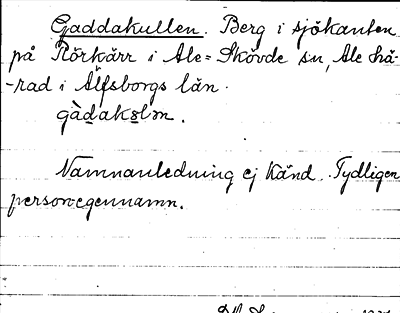 Gaddakullen. Berg i sjökanten
på Rörkärr i Ale=Skövde sn, Ale hä-
-rad i Älfsborgs län.
gàdakɵlm.
Namnanledning ej känd. Tydligen
personegennamn.